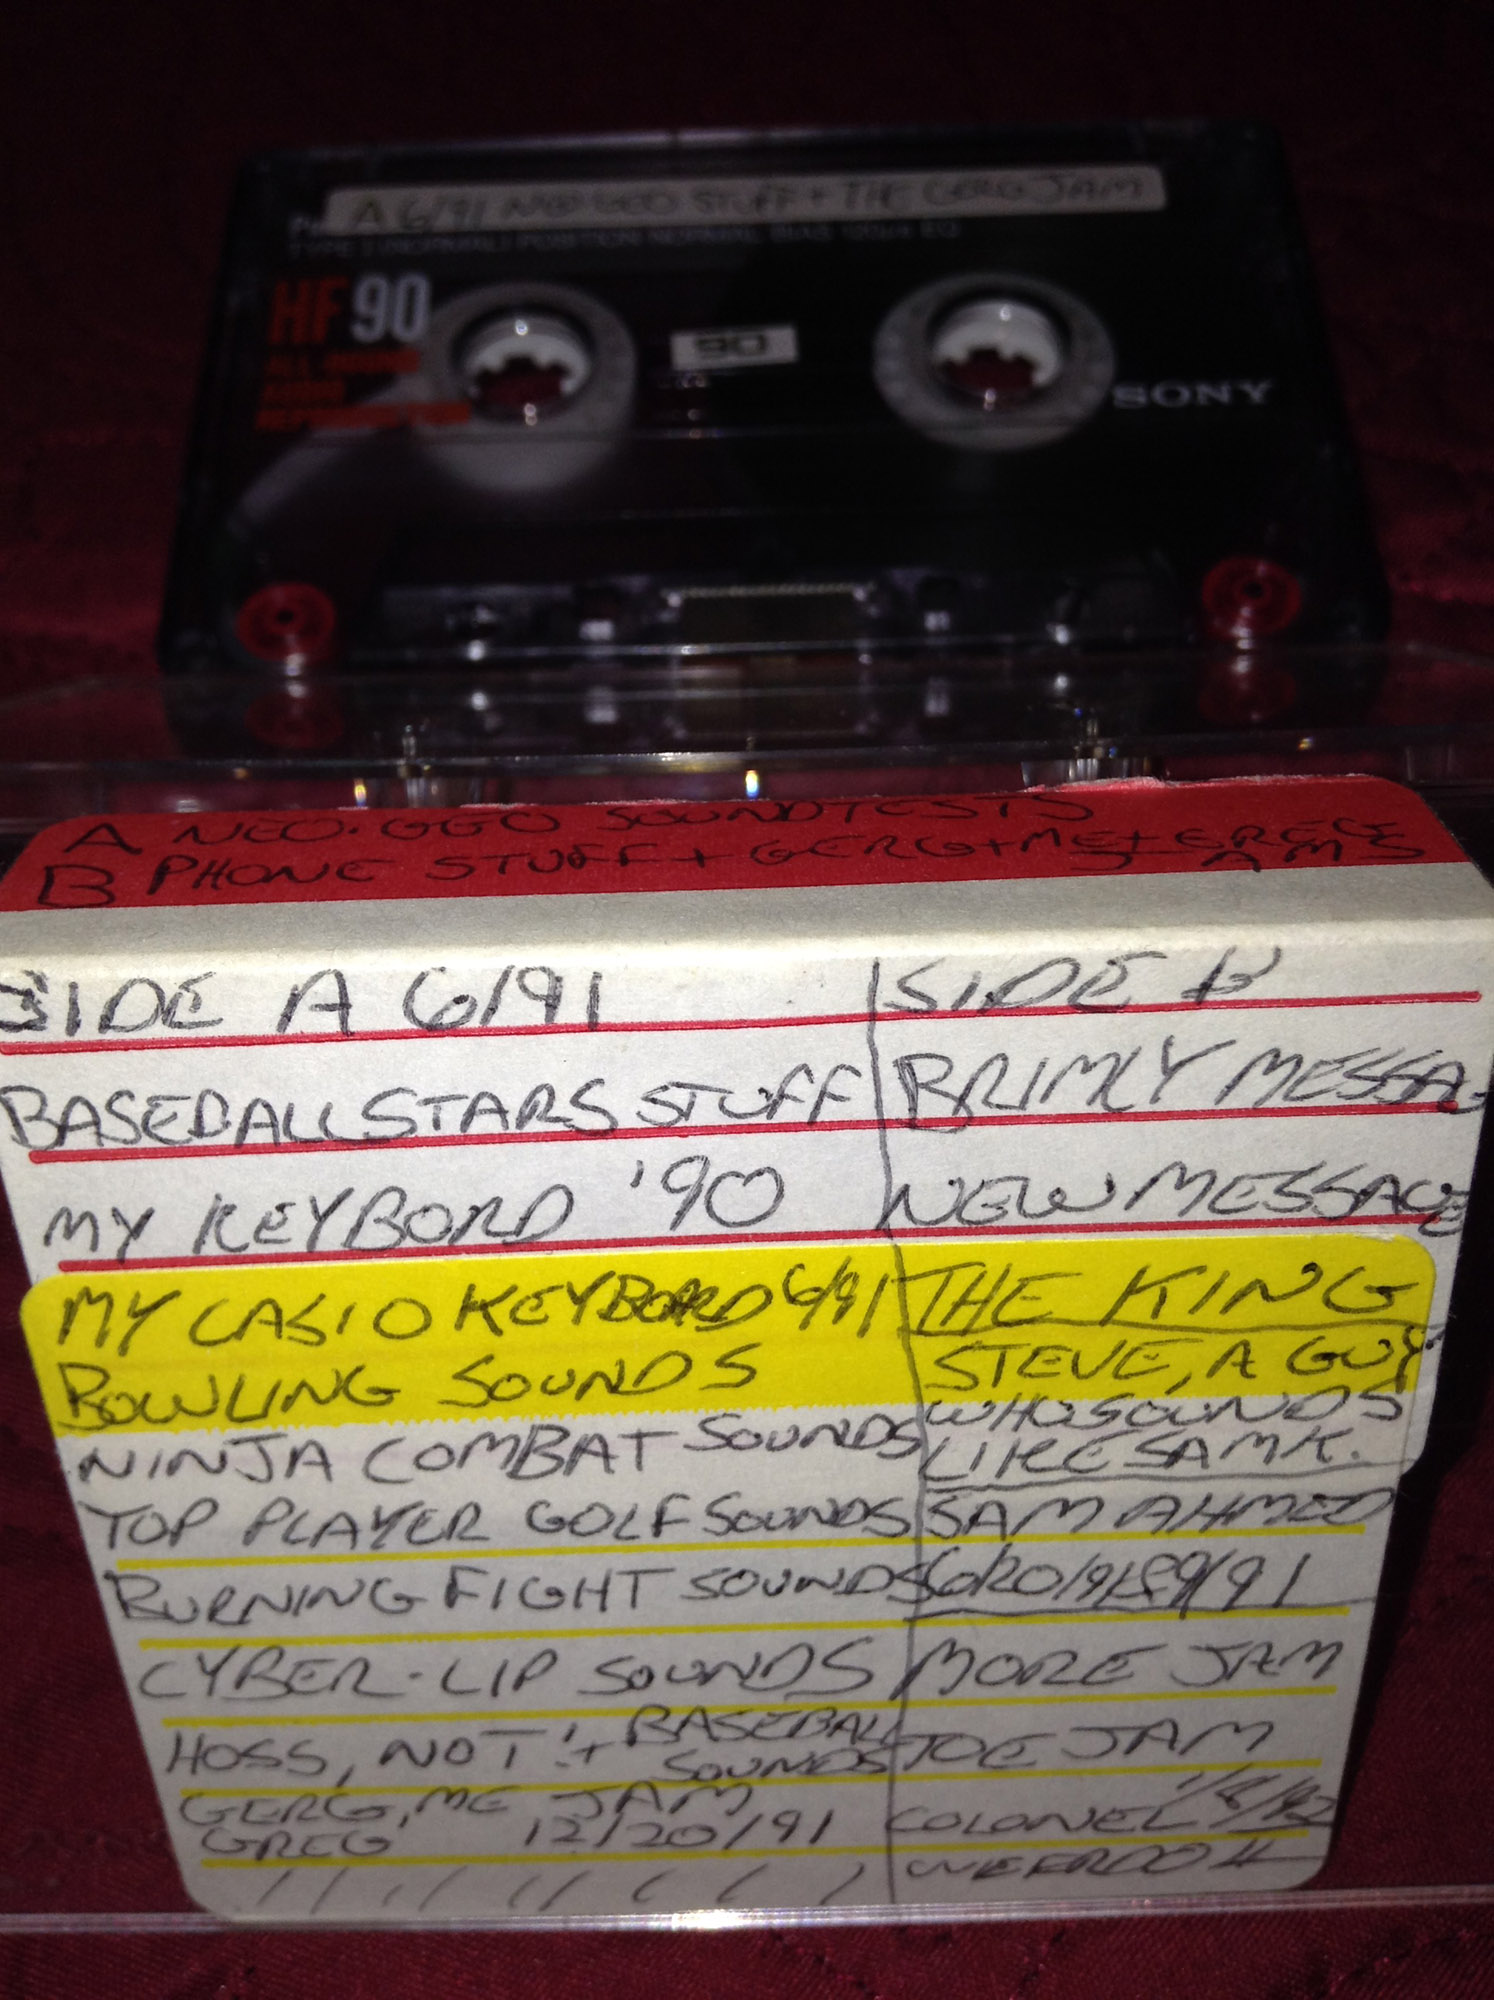 A 6/91 NEO-GEO STUFF + THE GERG JAM
TYPE I (NORMAL) POSITION NORMAL BIAS 120μs EQ
HF 90
90
SONY
A NEO-GEO SOUNDTESTS
B PHONE STUFF + GERG + ME +
JAMS
SIDE A 6/91
BASEBALL STARS STUFF
MY KEYBORD '90
MY CASIO KEYBORD 6/91
BOWLING SOUNDS
NINJA COMBAT SOUNDS
TOP PLAYER GOLF SOUNDS
BURNING FIGHT SOUNDS
CYBER-LIP SOUNDS
HOSS, NOT! + BASEBALL
SOUNDS
GERG, ME JAM
GREG 12/20/91
SIDE B
BRIMLY MESSAG
NEW MESSAGE
THE KING
STEVE, A GUY
WHO SOUNDS
LIKE SAM K.
SAM AHMED
MORE JAM
JOE JAM
COLONEL
WEERDO II